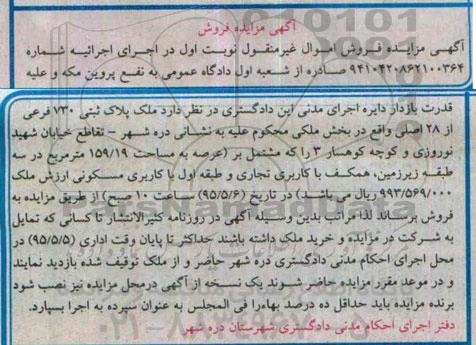 آگهی مزایده فروش
آگهی مزایده فروش اموال غیرمنقول نوبت اول در اجرای اجرائیه شماره
۹۴۱۰۴۲۰۸۶۲۱۰۰۳۶۴ صادره از شعبه اول دادگاه عمومی به نفع پروین مکه و علیه
قدرت بازدار دایره اجرای مدنی این دادگستری در نظر دارد ملک پلاک ثبتی ۷۳۰ فرعی
از ۲۸ اصلی واقع در بخش ملکی محکوم علیه به نشانی دره شهر - تقاطع خیابان شهید
نوروزی و کوچه کوهسار ۳ را که مشتمل بر (عرصه به مساحت ۱۵۹/۱۹ مترمربع در سه
طبقه زیرزمین، همکف با کاربری تجاری و طبقه اول با کاربری مسکونی ارزش ملک
۹۹۳/۵۶۹/۰۰۰ ریال می باشد) در تاریخ (۹۵/۵/۶) ساعت ۱۰ صبح) از طریق مزایده به
فروش برساند لذا مراتب بدین وسیله آگهی در روزنامه کثیرالانتشار تا کسانی که تمایل
به شرکت در مزایده و خرید ملک داشته باشند حداکثر تا پایان وقت اداری (۹۵/۵/۵) در
محل اجرای احکام مدنی دادگستری دره شهر حاضر و از ملک توقیف شده بازدید نمایند
و در موعد مقرر مزایده حاضر شوند یک نسخه از آگهی درمحل مزایده نیز نصب شود
برنده مزایده باید حداقل ده درصد بهاءرا فی المجلس به عنوان سپرده به اجرا بسپارد.
دفتر اجرای احکام مدنی دادگستری شهرستان دره شهر